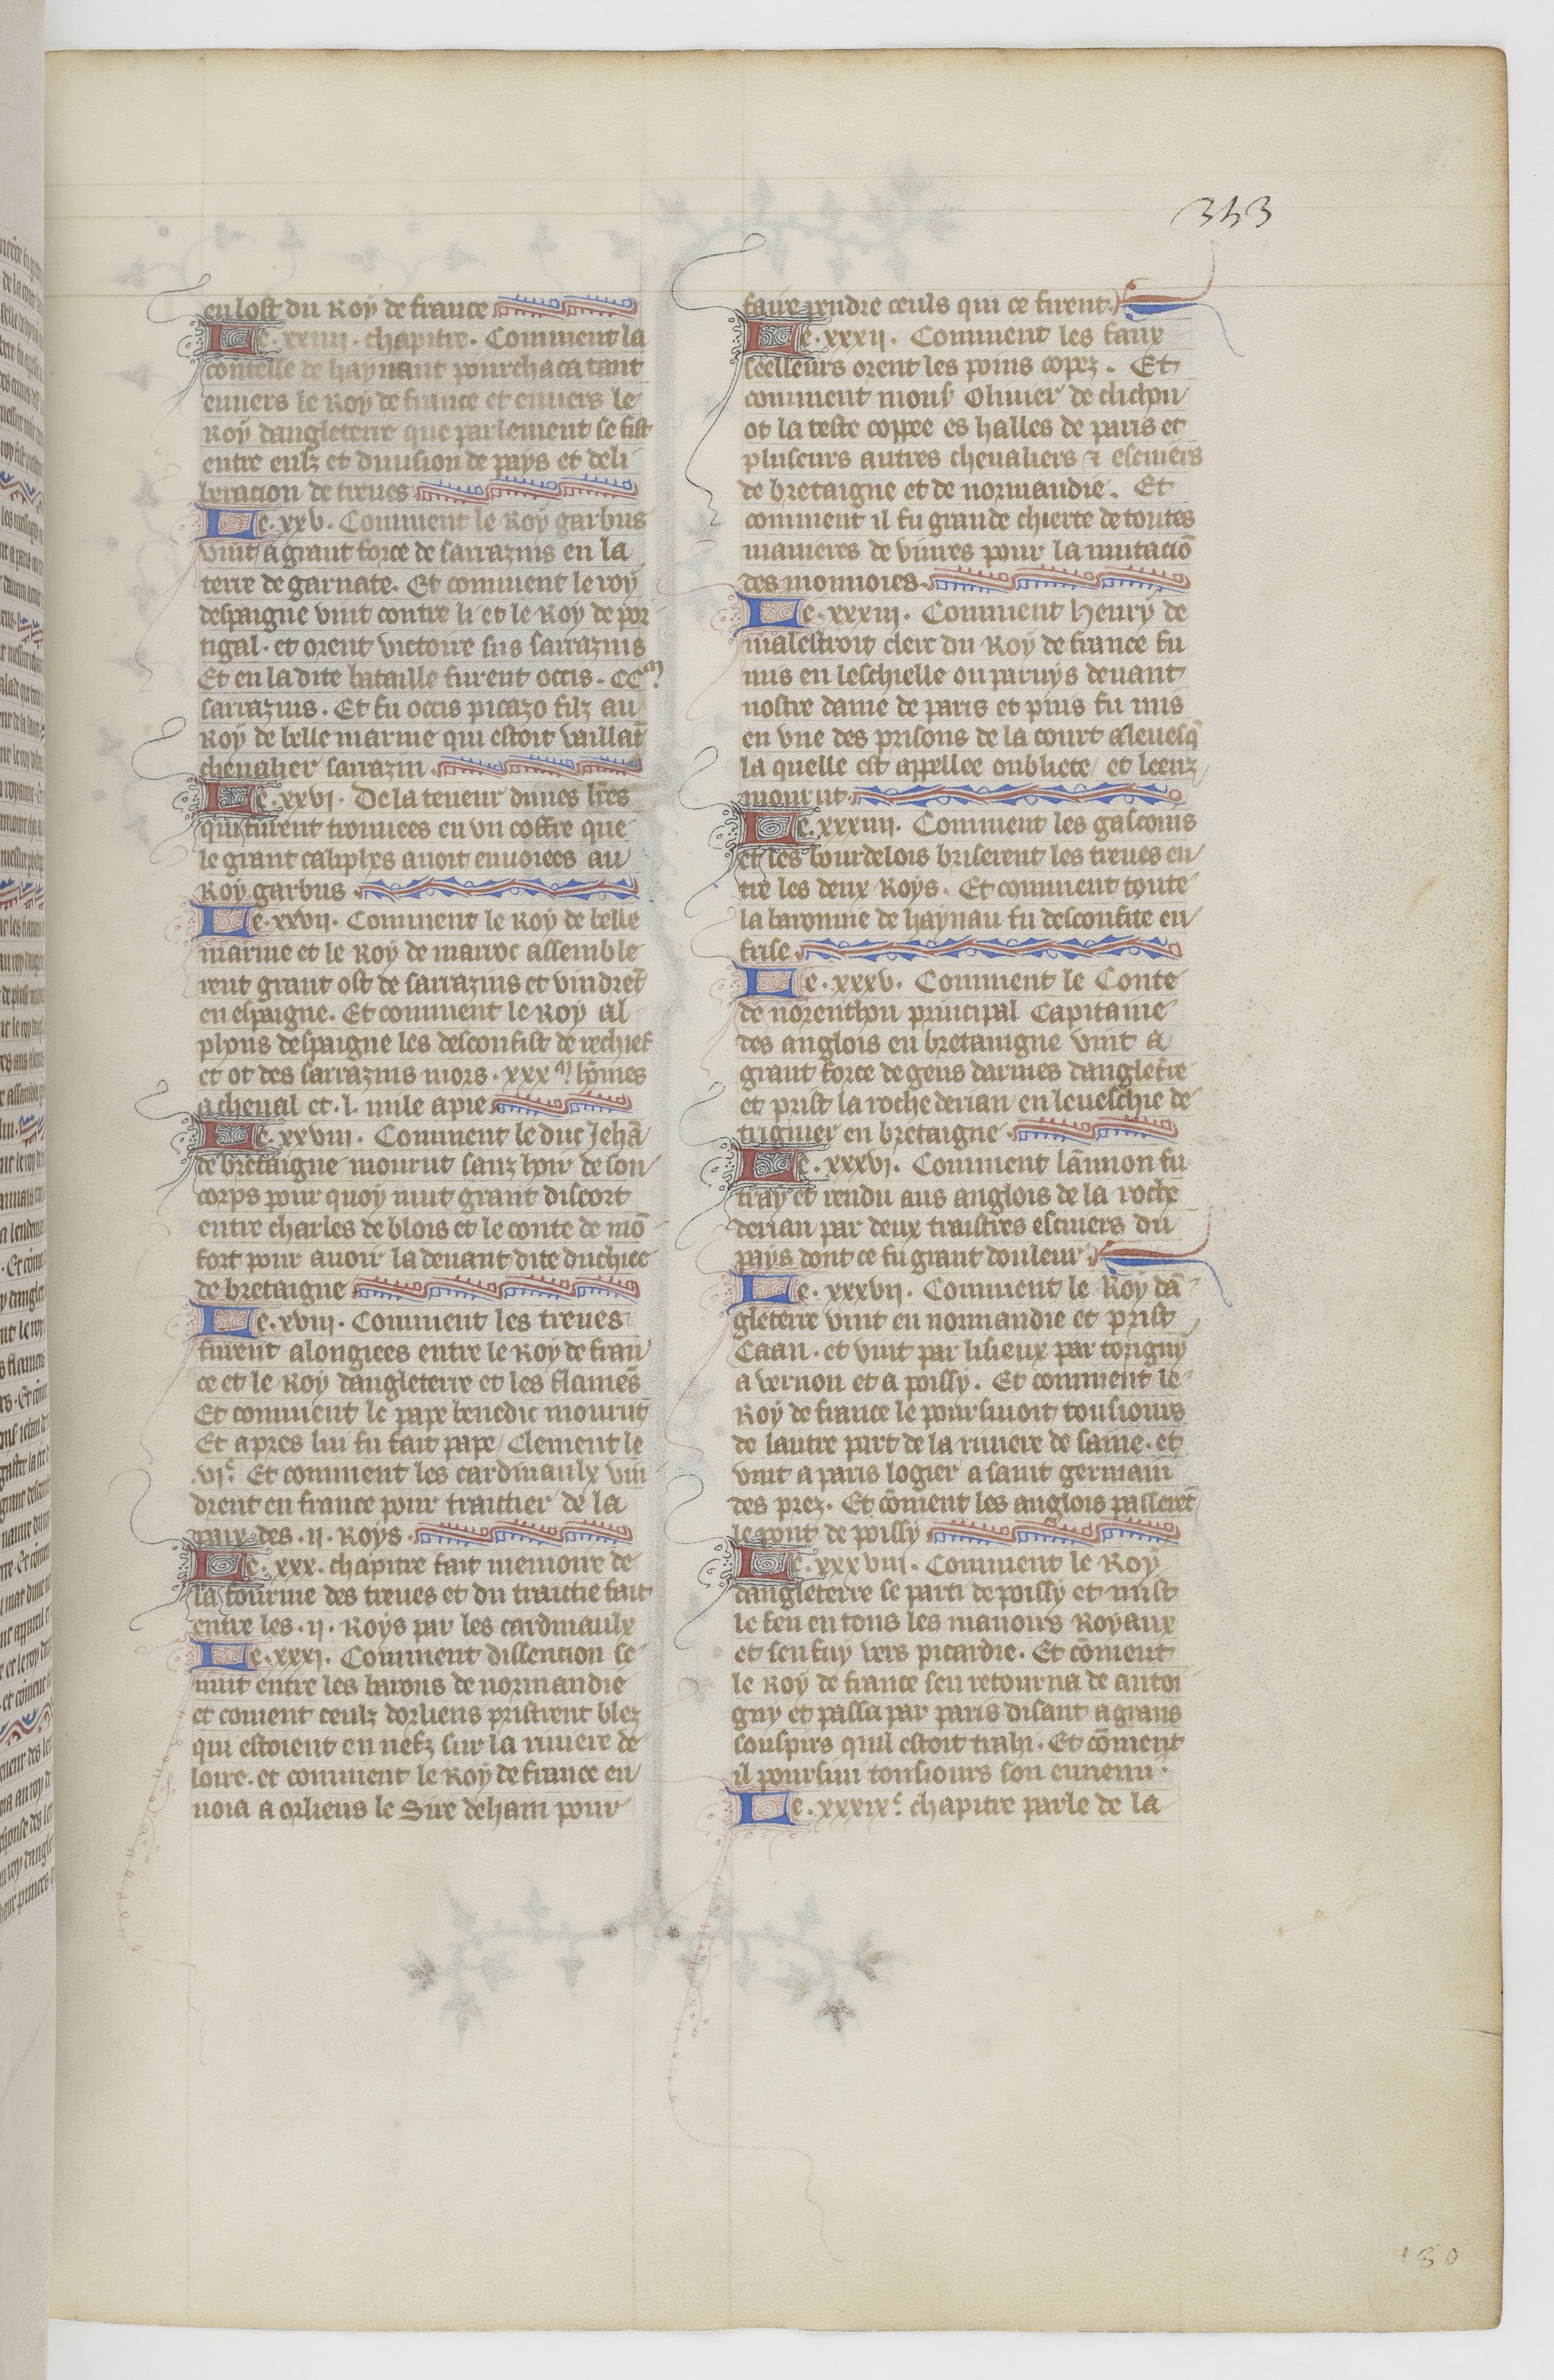 343
en lost du Roy de france
Le .xxiiii. chapitre. Comment la
contesse de haynaut pourchaca tant
enuers le Roy de france et enuers le
Roy dangleterre que parlement se fist
entre eulz et diuision de pays et deli
beracion de treues
Le .xxv. Comment le Roy garbus
vint a grant force de sarrazins en la
terre de garnate. Et comment le roy
despaigne vint contre li et le Roy de por
tigal. et orent victoire sus sarrazins
Et en la dite bataille furent occis. CCᵐ
sarrazins. Et fu occis picazo filz au
Roy de belle marine qui estoit vaillāt
cheualier sarrazin
Le .xxvj. De la teneur dunes lr̄es
qui furent trouuees en vn coffre que
le grant caliphes auoit enuoiees au
Roy garbus
Le .xxvij. Comment le Roy de belle
marine et le Roy de marroc assemble
rent grant ost de sarrazins et vindrēt
en espaigne. Et comment le Roy al
phons despaigne les desconfist de rechief
et ot des sarrazins mors. xxxᵐ hōmes
a cheual et .l. mile a pie
Le .xxviii. Comment le duc Jehā
de bretaigne mourut sanz hoir de son
corps pour quoy mut grant discort
entre charles de blois et le conte de mō
fort pour auoir la deuant dite duchiee
de bretaigne
Le .xviiii. Comment les treues
furent alongiees entre le Roy de fran
ce et le Roy dangleterre et les flamēs
Et comment le pape benedic mourut
Et apres lui fu fait pape Clement le
.vjᵉ. Et comment les cardinaulx vin
drent en france pour traitier de la
paix des .ij. Roys.
Le .xxx. chapitre fait memoire de
la fourme des treues et du traictie fait
entre les .ij. Roys par les cardinaulx
Le .xxxj. Comment dissencion se
mut entre les barons de normandie
et coment ceulz dorliens pristrent blez
qui estoient en nefz sur la riuiere de
loire. et comment le Roy de france en
uoia a orliens le Sire de ham pour
faire pendre ceuls qui ce firent.
Le .xxxij. Comment les faux
seelleurs orent les poins copez. Et
comment mons͛ Oliuier de clichon
ot la teste coppee es halles de paris et
pluseurs autres cheualiers ⁊ escuiers
de bretaigne et de normandie. Et
comment il fu grande chierte de toutes
manieres de viures pour la mutaciō
des monnoies.
Le .xxxiij. Comment henry de
malestroit clerc du Roy de france fu
mis en leschielle ou paruys deuant
nostre dame de paris et puis fu mis
en vne des prisons de la court a leuesq̄
la quelle est appellee oubliete / et leenz
mourut.
Le .xxxiiij. Comment les gascoins
et les bourdelois briserent les treues en
tre les deux Roys. Et comment toute
la baronnie de haynau fu desconfite en
frise.
Le .xxxv. Comment le Conte
de norenthon principal Capitaine
des anglois en bretaingne vint a
grant force de gens darmes dangleterre
et prist la roche derian en leueschie de
triguier en bretaigne.
Le .xxxvj. Comment lānnion fu
tray et rendu aus anglois de la roche
derian par deux traistres escuiers du
pays dont ce fu grant douleur
Le .xxxvij. Comment le Roy dā
gleterre vint en normandie et prist
Caan. et vint par lisieux par torigny
a vernon et a poissy. Et comment le
Roy de france le poursuiuoit tousiours
de lautre part de la riuiere de saine. et
vint a paris logier a saint germain
des prez. Et cōment les anglois passerēt
le pont de poissy
Le .xxxviii. Comment le Roy
dangleterre se parti de poissy et mist
le feu en tous les manoirs Royaux
et sen fuy vers picardie. Et cōment
le Roy de france sen retourna de antoi
gny et passa par paris disant a grans
souspirs quil estoit trahi. Et cōment
il poursuiui tousiours son ennemi.
Le .xxxixᵉ. chapitre parle de la
180